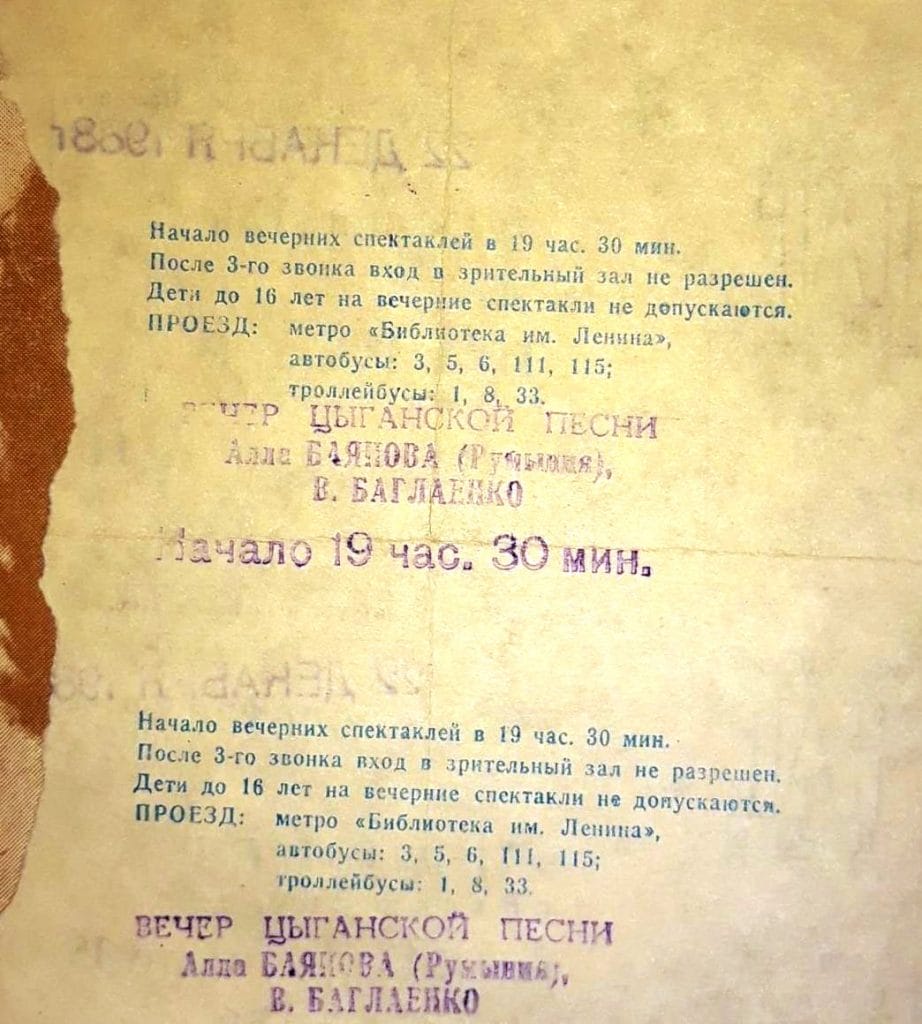 22 ДЕКАБРЯ 1968г
Начало вечерних спектаклей в 19 час. 30 мин.
После 3-го звонка вход в зрительный зал не разрешен.
Дети до 16 лет на вечерние спектакли не допускаются.
ПРОЕЗД: метро «Библиотека им. Ленина»,
автобусы: 3, 5, 6, 111, 115;
троллейбусы: 1, 8, 33.
ВЕЧЕР ЦЫГАНСКОЙ ПЕСНИ
Алла БАЯНОВА (Румыния),
В. БАГЛАЕНКО
Начало 19 час. 30 мин.
22 ДЕКАБРЯ
Начало вечерних спектаклей в 19 час. 30 мин.
После 3-го звонка вход в зрительный зал не разрешен.
Дети до 16 лет на вечерние спектакли не допускаются.
ПРОЕЗД: метро «Библиотека им. Ленина»,
автобусы: 3, 5, 6, 111, 115;
троллейбусы: 1, 8, 33.
ВЕЧЕР ЦЫГАНСКОЙ ПЕСНИ
Алла БАЯНОВА (Румыния),
В. БАГЛАЕНКО